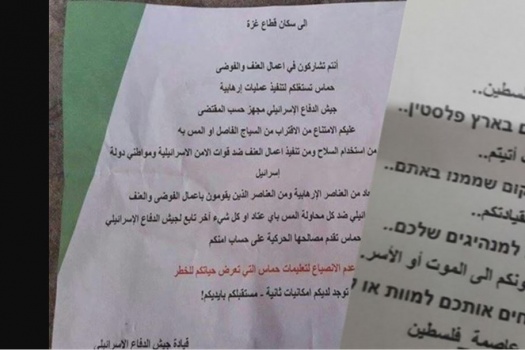 الى سكان قطاع غزة
أنتم تشاركون في اعمال العنف والفوضى
حماس تستغلكم لتنفيذ عمليات إرهابية
جيش الدفاع الإسرائيلي مجهز حسب المقتضى
عليكم الامتناع من الاقتراب من السياج الفاصل او المس به
من استخدام السلاح ومن تنفيذ اعمال العنف ضد قوات الامن الاسرائيلية ومواطني دولة
إسرائيل
من العناصر الإرهابية ومن العناصر الذين يقومون باعمال الفوضى والعنف
ضد كل محاولة المس بأي عتاد او كل شيء أخر تابع لجيش الدفاع الإسرائيلي
حماس تقدم مصالحها الحركية على حساب امنكم
عدم الانصياع لتعليمات حماس التي تعرض حياتكم للخطر
توجد لديكم امكانيات ثانية - مستقبلكم بأيديكم!
قيادة جيش الدفاع الإسرائيلي
فلسطين..
בארץ פלסטין..
أتيتم..
שממנו באתם..
למנהיגים שלכם..
الى الموت أو الأسر.
אותכם למוות או
عاصمة فلسطين